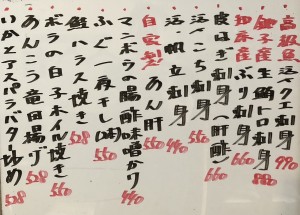 高級魚 活〆クエ刺身 990
銚子産 生鮪トロ刺身 880
知床産 活〆つぶ刺身 660
皮はぎ刺身(肝酢) 660
活〆こち刺身 550
活・帆立刺身 440
自家製! あん肝 550
マンボウの腸酢味噌かけ 440
ふぐ一夜干し(2枚) 550
鮭ハラス焼き 528
ボラの白子ホイル焼き 550
あんこう竜田揚げ 528
いかとアスパラバター炒め 528